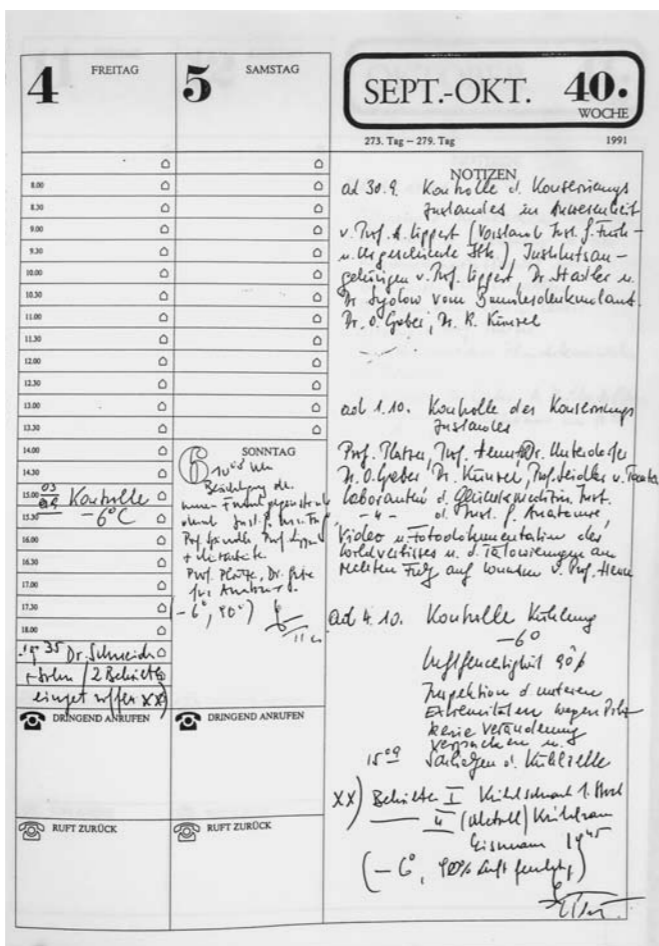 4 FREITAG
5 SAMSTAG
SEPT.-OKT. 40. WOCHE
273. Tag – 279. Tag 1991
8.00
8.30
9.00
9.30
10.00
10.30
11.00
11.30
12.00
12.30
13.00
13.30
14.00
14.30
15.00 03 Kontrolle
15.30 –6°C
16.00
16.30
17.00
17.30
18.00
35 Dr. Schneider
+ Sohn / 2 Behälter
xx)
DRINGEND ANRUFEN
RUFT ZURÜCK
SONNTAG
6 10 Uhr
Besichtigung der
Prof.
+ Mitarbeiter
Prof. Platzer, Dr.
für Anatomie
(–6°, 90°)
DRINGEND ANRUFEN
RUFT ZURÜCK
NOTIZEN
ad 30.9. Kontrolle d. Konservierungs
zustandes in Anwesenheit
v. Prof. A. Lippert (Vorstand Inst. f. Früh-
u. Urgeschichte Ibk.), Institutsan-
gehörigen v. Prof. Lippert, Dr. Stadler u.
Dr. vom Bundesdenkmalamt.
Dr. O. Gaber, Dr. K. Künzel
ad 1.10. Kontrolle des Konservierungs
zustandes
Prof. Platzer, Prof. Henn, Dr. Unterdorfer
Dr. O. Gaber, Dr. Künzel, Prof. Seidler u.
Laborantin d. Gerichtsmedizin Inst.
– " – d. Inst. f. Anatomie,
Video u. Fotodokumentation des
u. d. Tätowierungen am
rechten Fuß auf Wunsch v. Prof. Henn
ad 4.10. Kontrolle Kühlung
–6°
Luftfeuchtigkeit 90%
Inspektion d. unteren
Extremitäten wegen Pilz
keine Veränderung
verpacken u.
15 09 d. Kühlzelle
xx) Behälter I Kühlschrank 1. Stock
II (Metall) Kühlraum
Eismann 19 45
(–6°, 90% Luftfeuchtg.)